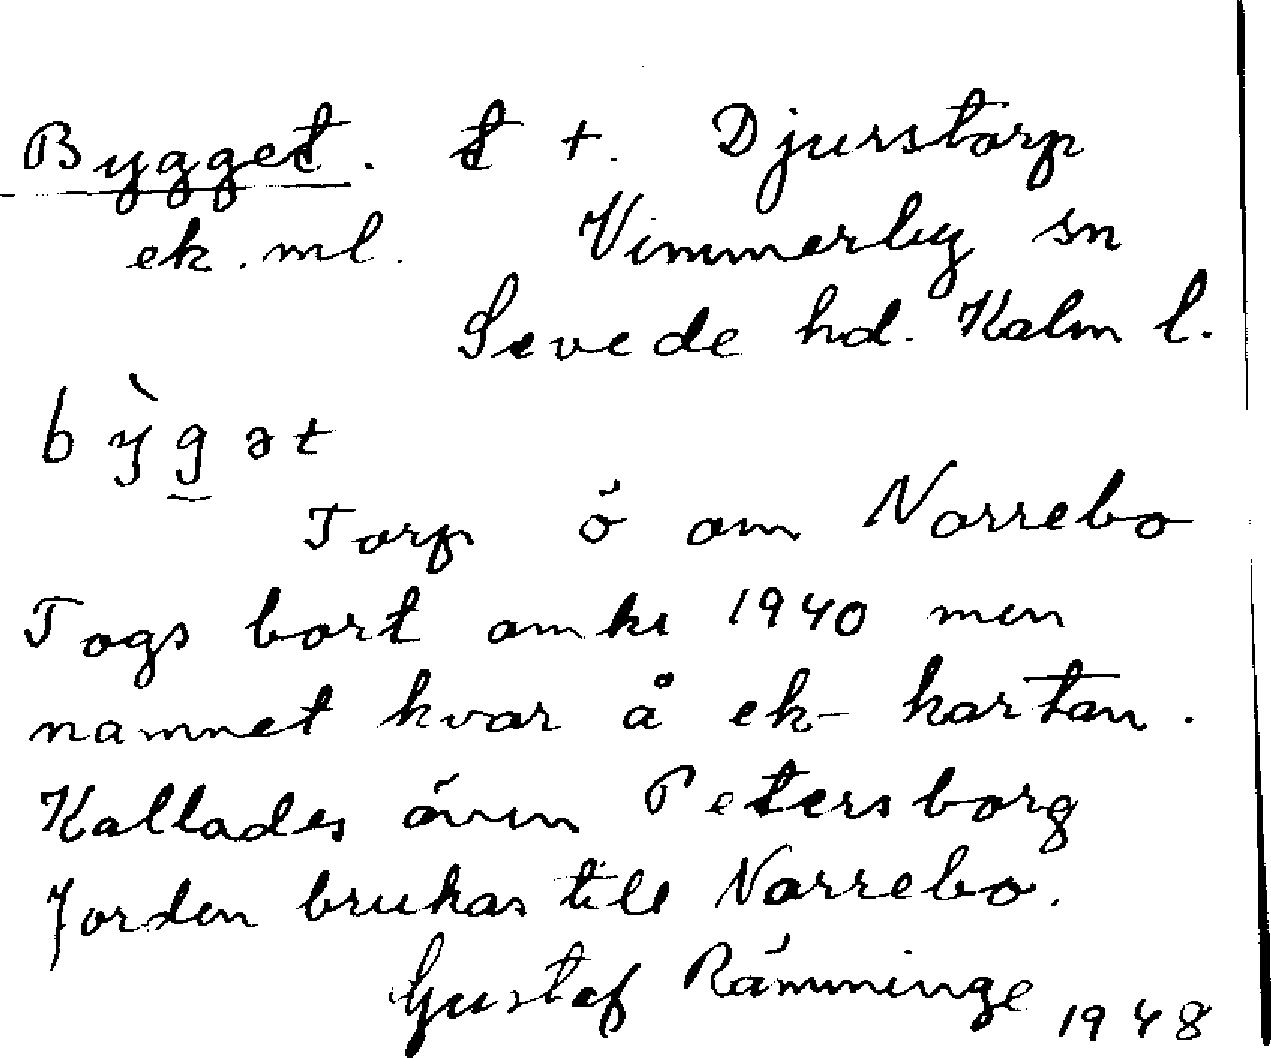 Bygget. t +. Djurstorp
ek. ml. Vimmerby sn
Sevede hd. Kalm l.
bỳgət
Torp ö om Norrebo
Togs bort omkr 1940 men
namnet kvar å ek-kartan.
Kallades även Petersborg
Jorden brukas till Norrebo.
Gustaf Rämminge 1948